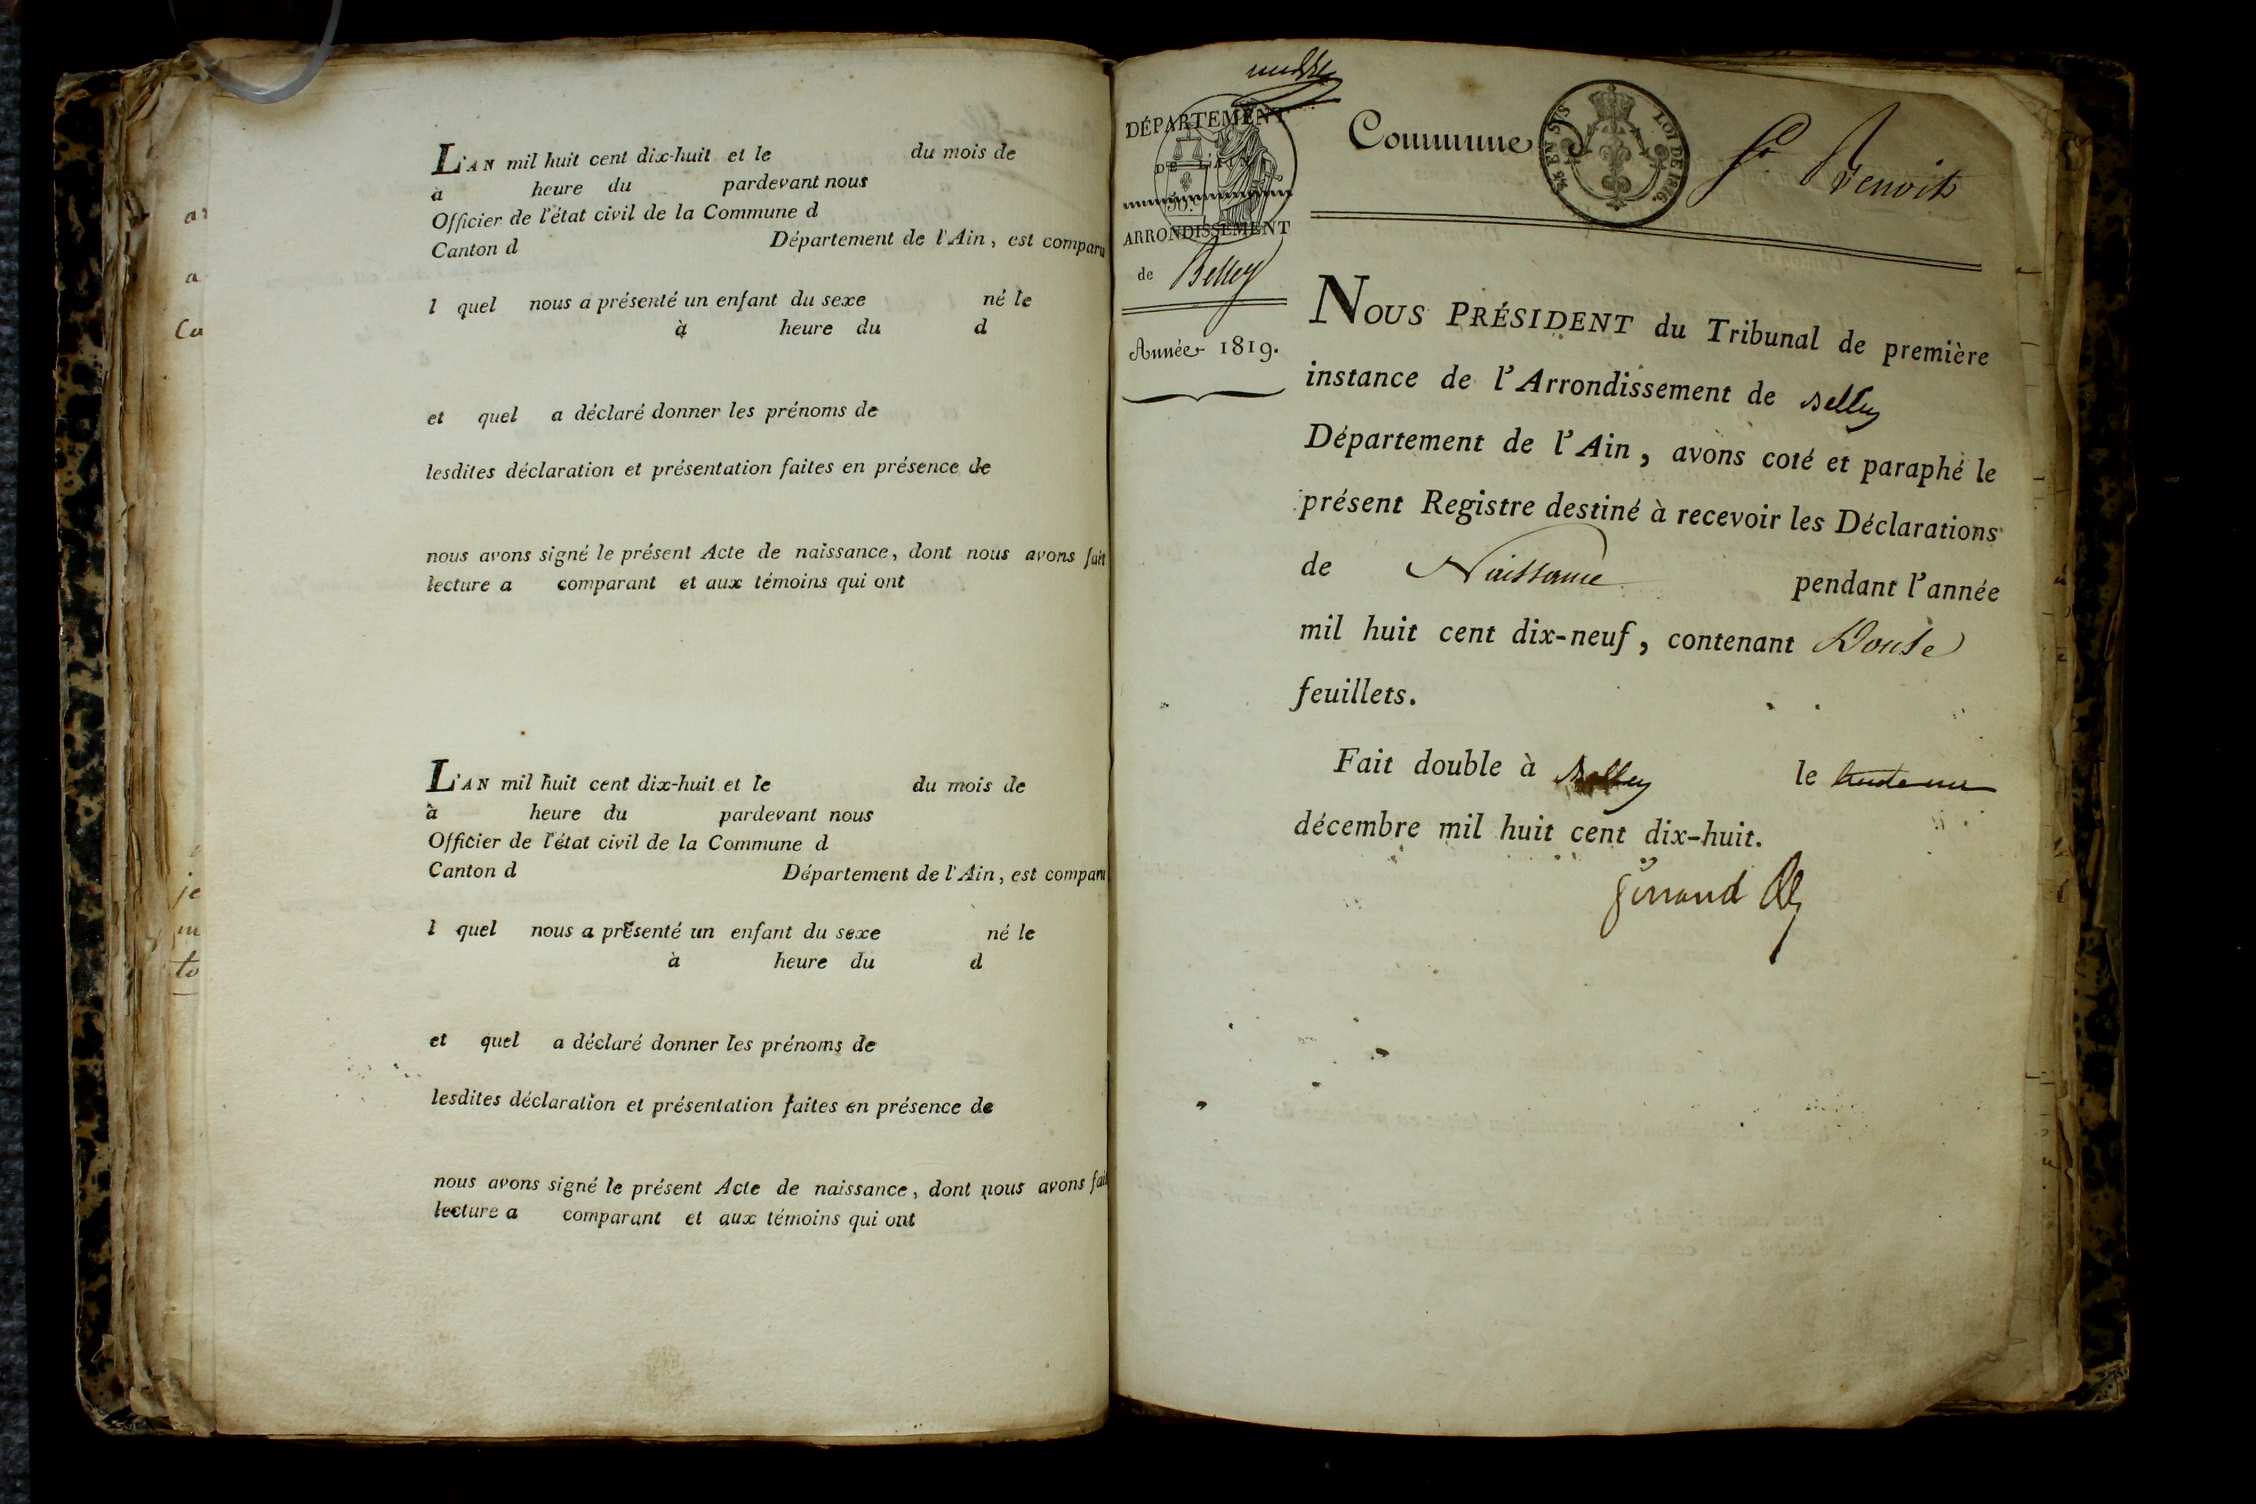 L'AN mil huit cent dix-huit et le du mois de
à heure du pardevant nous
Officier de l'état civil de la Commune d
Canton d Département de l'Ain, est comparu
l quel nous a présenté un enfant du sexe né le
à heure du d
et quel a déclaré donner les prénoms de
lesdites déclaration et présentation faites en présence de
nous avons signé le présent Acte de naissance, dont nous avons fait
lecture a comparant et aux témoins qui ont
L'AN mil huit cent dix-huit et le du mois de
à heure du pardevant nous
Officier de l'état civil de la Commune d
Canton d Département de l'Ain, est comparu
l quel nous a présenté un enfant du sexe né le
à heure du d
et quel a déclaré donner les prénoms de
lesdites déclaration et présentation faites en présence de
nous avons signé le présent Acte de naissance, dont nous avons fait
lecture a comparant et aux témoins qui ont
DÉPARTEMENT
DE L'AIN
ARRONDISSEMENT
de Belley
Année 1819.
Commune St Benoit
LOI DE 1816.
NOUS PRÉSIDENT du Tribunal de première
instance de l'Arrondissement de Belley
Département de l'Ain, avons coté et paraphé le
présent Registre destiné à recevoir les Déclarations
de Naissance pendant l'année
mil huit cent dix-neuf, contenant Douse
feuillets.
Fait double à Belley le trente un
décembre mil huit cent dix-huit.